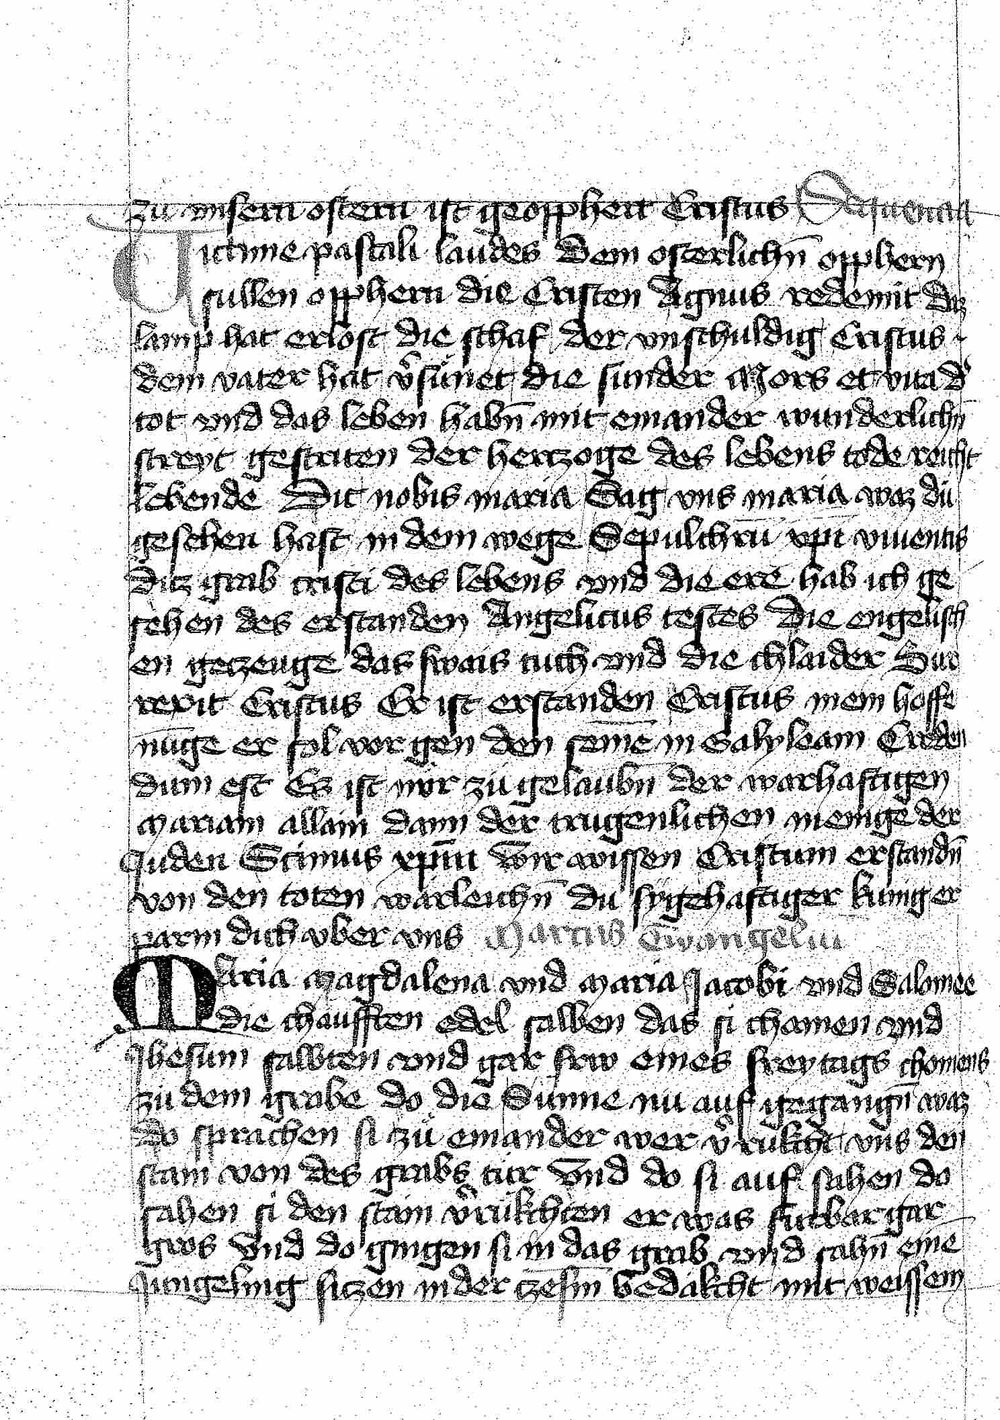 zu unsern ostern ist geopphert Cristus Sequencia
Uictime pascali laudes Dem osterlichn̄ opphern
sullen opphern die Cristen Agnus redemit Ditz
lamp hat erlost die schaf der unschuldig Cristus
dem vater hat v̉sünet die sunder Mors et vita d̉
tot vnd das leben habn̄ mit einander wunderlichn̄
streyt gestriten der hertzoge des lebens tode reicht
lebende Dic nobis maria Sag vns maria waz du
gesehen hast in dem wege Sepulchrū xp̄i viuentis
Ditz grab cristi des lebens vnd die ere hab ich ge
sehen des erstanden Angelicus testes Die engelisch
en getzeuge das swais tuch vnd die chlaider Sur
rexit Cristus Er ist erstanden Cristus mein hoffe
nūge er sol vor gen den seinē in Galyleam Creden
dum est Es ist mir zu gelaubn̄ der warhaftigen
Mariam allain dann der trugenlichen menige der
Juden Scimus xp̄m Wir wissen Cristum erstandn̄
von den toten warleichn̄ du sygehaftiger kunig er
parm dich vber vns Marcus Ewangeliū
Maria Magdalena vnd Maria Jacobi vnd Salomee
die chaufften edel salben das si chomen vnd
Jhesum salbten vnd gar frw eines freytags chomens
zu dem grabe do die Sunne nu auf gegangn̄ waz
do sprachen si zu einander wer v̉rukcht vns den
stain von des grabs tür Vnd do si auf sahen do
sahen si den stain v̉rukchten er was furbar gar
gros Vnd do gingen si in das grab vnd sahn̄ einē
Jungeling sitzen in der zesm bedakcht mit weissem